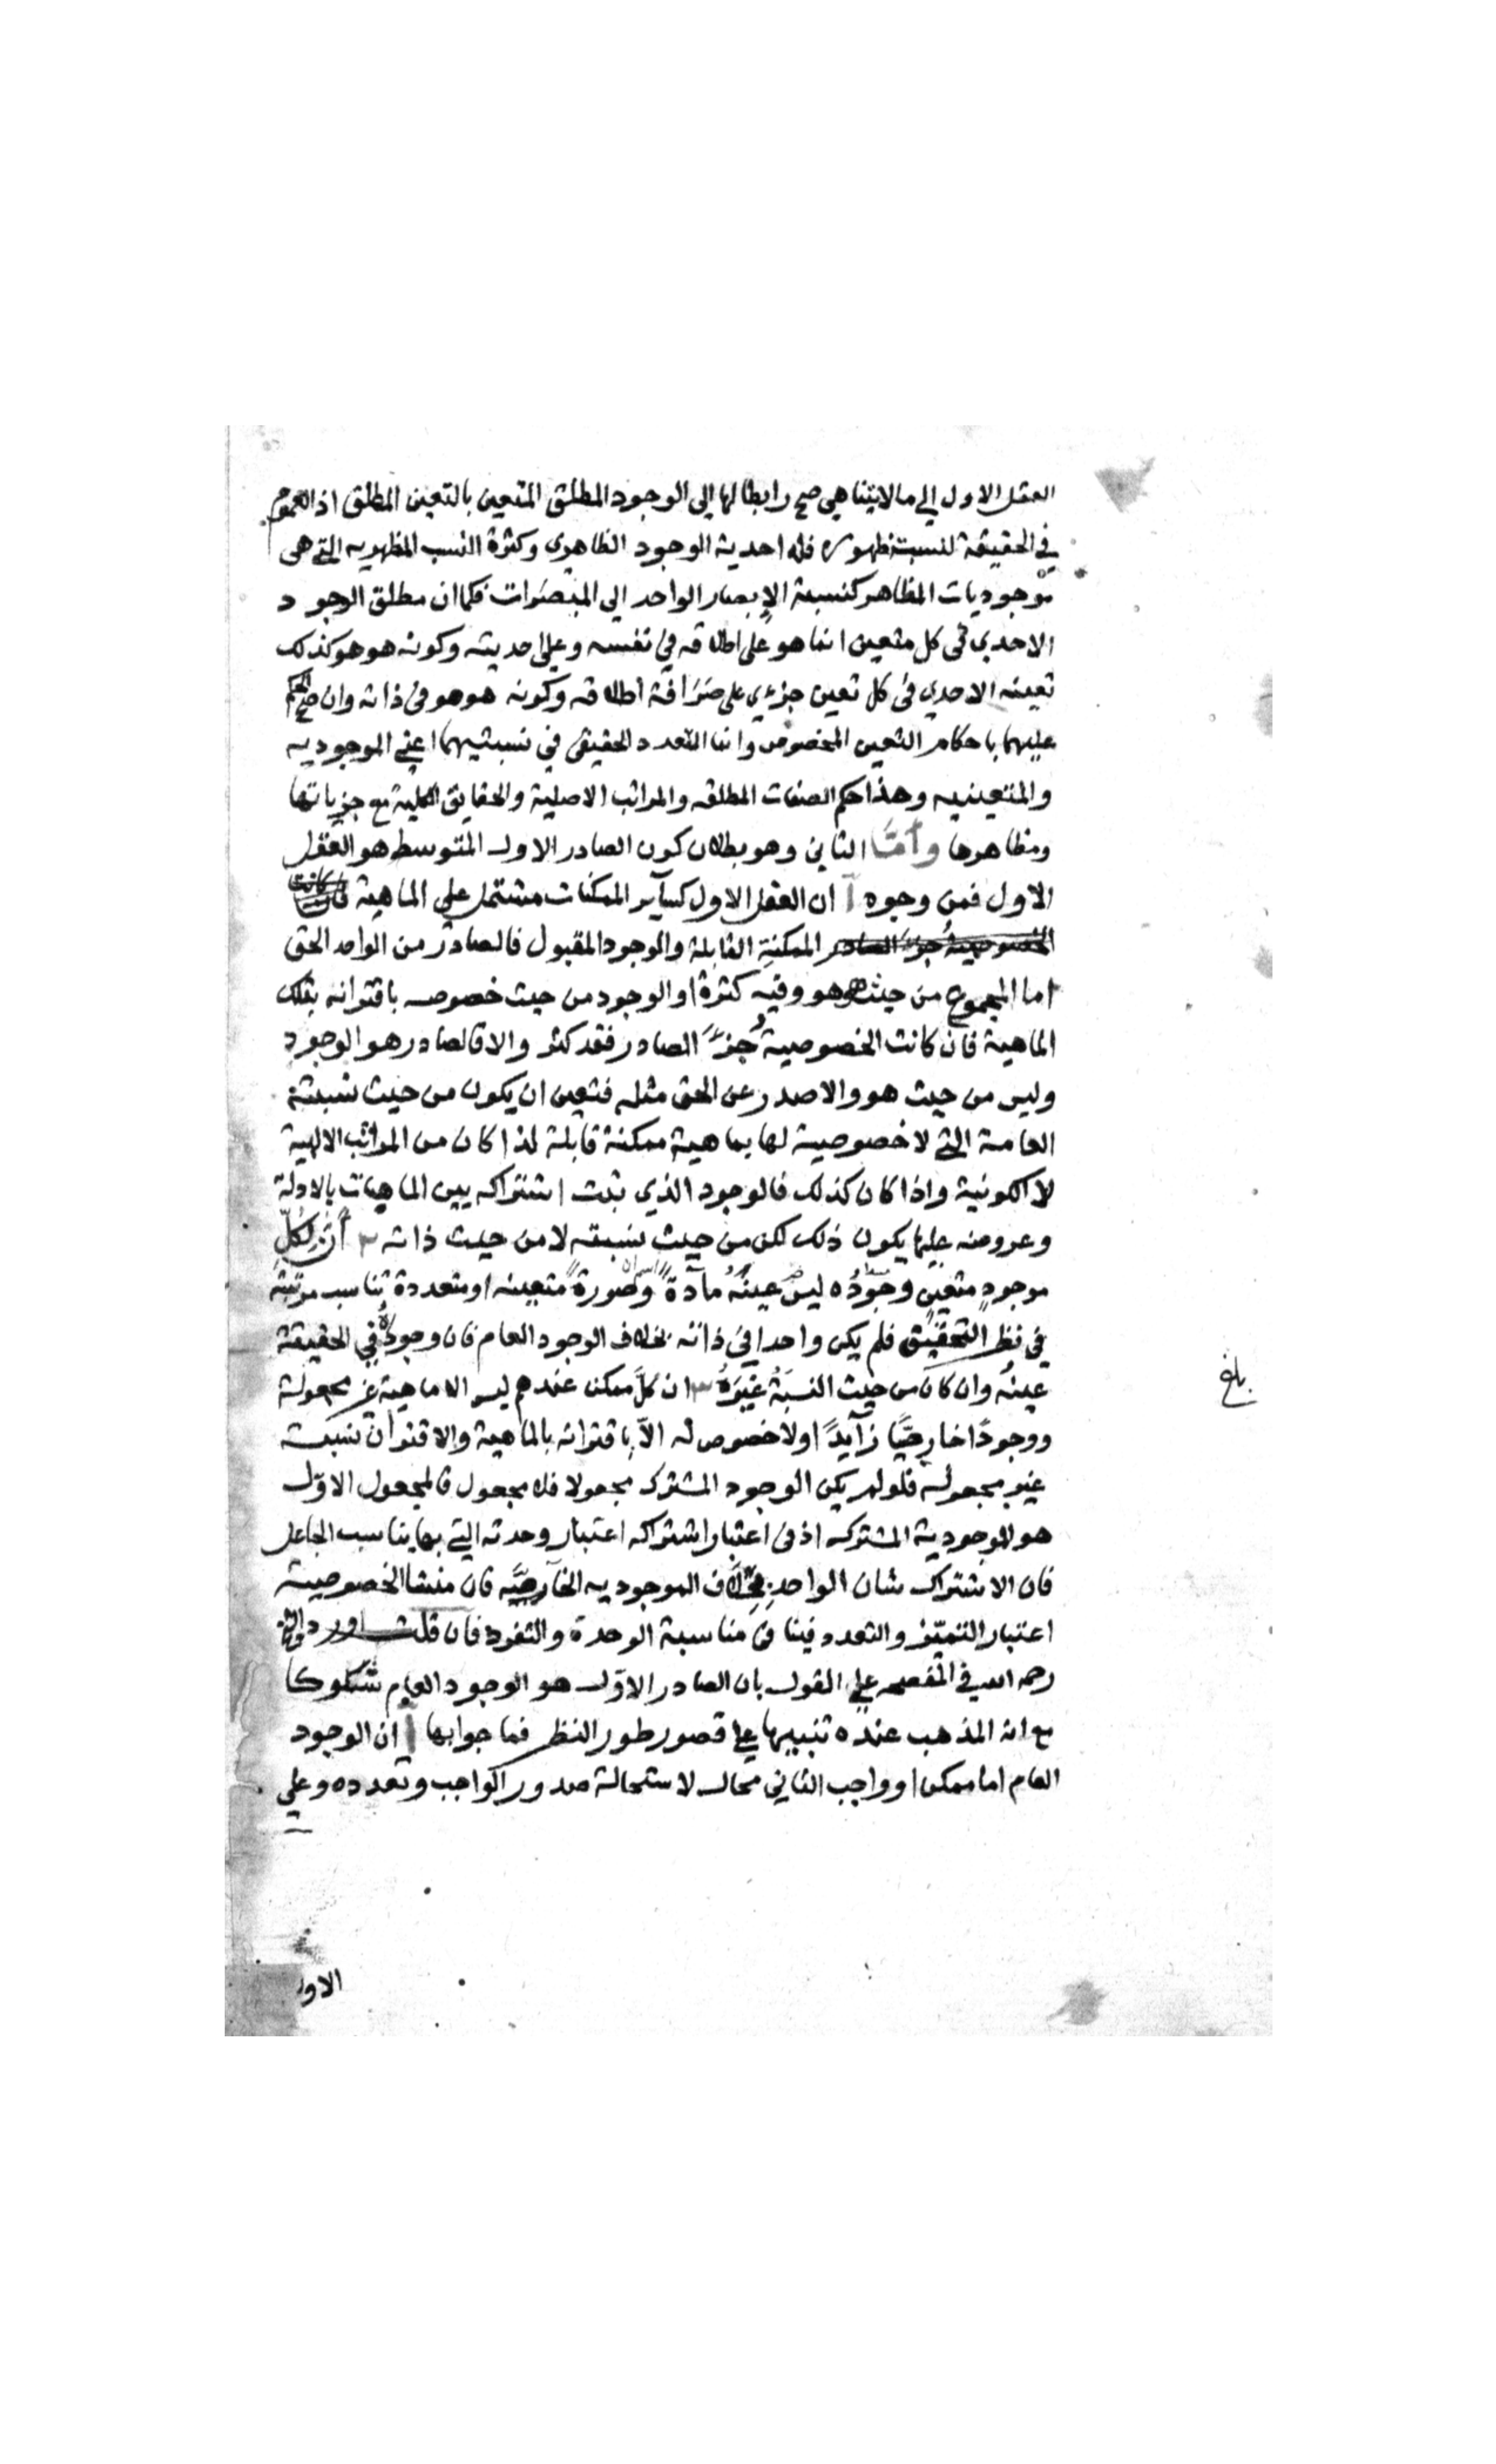 العقل الاول الي ما لا يتناهي صح رابطا لها الي الوجود المطلق المتعين بالتعين المطلق اذ العموم
في الحقيقة لنسبة ظهوره فله احدية الوجود الظاهري وكثرة النسب المظهريه التي هي
موجوديات المظاهر كنسبة الإبصار الواحد الي المبصرات فكما ان مطلق الوجود
الاحدي في كل متعين انما هو على اطلاقه في نفسه وعلى احديته وكونه هو هو كذلك
تعينه الاحدي في كل تعين جزءي على صرافة اطلاقه وكونه هو هو في ذاته وان صح الحكم
عليهما باحكام التعين المخصوص وانما التعدد الحقيقي في نسبتيهما اعني الموجوديه
والمتعينيه وهذا حكم الصفات المطلقه والمراتب الاصلية والحقايق الكلية مع جزياتها
ومظاهرها وأمّا الثاني وهو بطلان كون الصادر الاول المتوسط هو العقل
الاول فمن وجوه آ ان العقل الاول كسآير الممكنات مشتمل علي الماهية فان كانت
الخصوصية جزء الصادر الممكنةِ القابلة والوجود المقبول فالصادر من الواحد الحق
اما المجموع من حيث هو هو وفيه كثرة او الوجود من حيث خصوصه باقترانه بتلك
الماهية فان كانت الخصوصية جُزءَ الصادر فقد كثر والا فالصادر هو الوجود
وليس من حيث هو والا صدر عن الحق مثله فتعين ان يكون من حيث نسبته
العامة التي لا خصوصية لها بماهية ممكنة قابلة لذا كان من المراتب الالهية
لا الكونية واذا كان كذلك فالوجود الذي ثبت اشتراكه بين الماهيات بالادلة
وعروضه عليها يكون ذلك لكن من حيث نسبته لا من حيث ذاته ٢ أنّ لكلِّ
موجودٍ متعينٍ وجودُه ليس عينَهُ مآدةً وصورةً متعينه او متعددة تناسب مرتبته
في نظر التحقيق فلم يكن واحدا في ذاته بخلاف الوجود العام فان وجودَهُ في الحقيقة
عينُه وان كان من حيث النسبَةُ غيرَهُ ٣ ان كلَّ ممكن عندهم ليس الا ماهية غير مجعولة
ووجودًا خارجيًّا زآيدًا اولا خصوص له الّا باقترانه بالماهية والاقتران نسبة
غير مجعوله فلو لم يكن الوجود المشترك مجعولا فلا مجعول فالمجعول الاوّل
هو الموجودية المشتركه اذ في اعتبار اشتراكه اعتبار وحدته التي بها يناسب الجاعل
فان الاشتراك شان الواحدِ بخلاف الموجوديه الخآرجيَّه فان منشا الخصوصية
اعتبار التميّز والتعدد فينافي مناسبة الوحدة والتفرد فان قلت اورد
رحمه الله في المفصحه علي القول بان الصادر الاوّل هو الوجود العام شكوكا
مع انه المذهب عنده تنبيها على قصور طور النظر فما جوابها آ ان الوجود
العام اما ممكن او واجب الثاني محال لاستحالة صدور الواجب وتعدده وعلي
الاول
بلغ